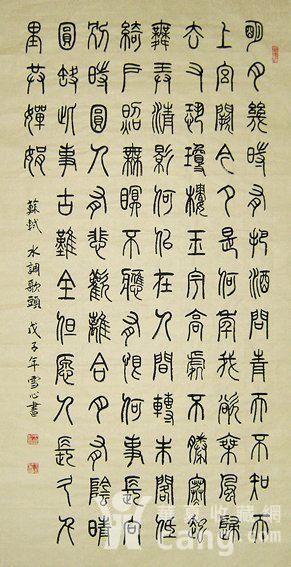 明月幾時有把酒問青天不知天
上宮闕今夕是何年我欲乘風歸
去又恐瓊樓玉宇高處不勝寒起
舞弄清影何似在人間轉朱閣低
綺戶照無眠不應有恨何事長向
別時圓人有悲歡離合月有陰晴
圓缺此事古難全但愿人長久千
里共嬋娟
蘇軾 水調歌頭 戊子年雪心書
华夏收藏网
Cang.com